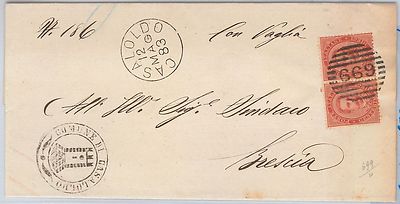 N. 186
Con Vaglia
CASALOLDO
12
MAG
83
669
All' Ill. Sig. Sindaco
Brescia
COMUNE DI CASALOLDO